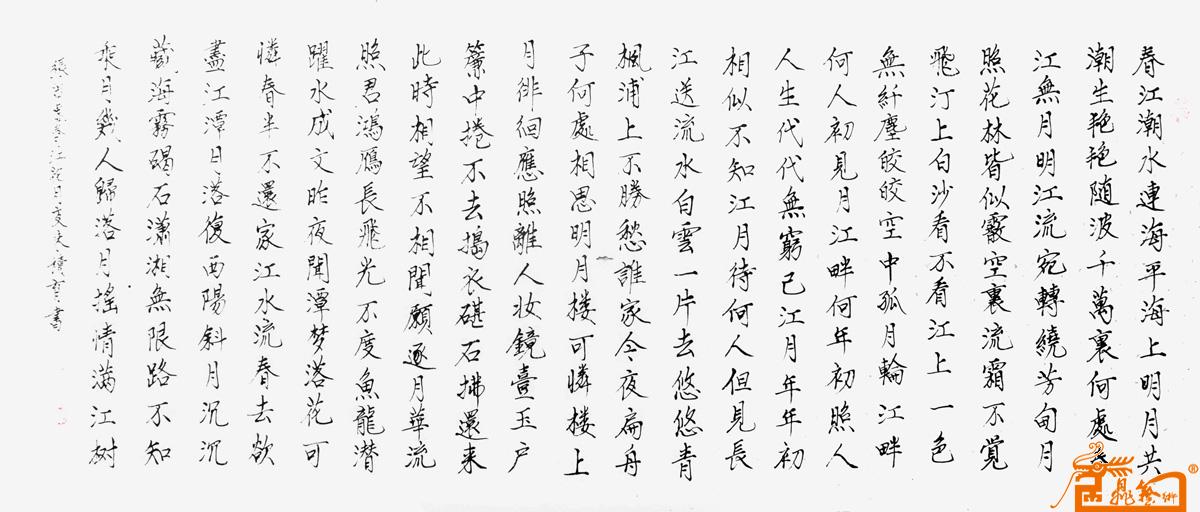 春江潮水連海平海上明月共
潮生艳艳随波千萬裏何處春
江無月明江流宛轉繞芳甸月
照花林皆似霰空裏流霜不覺
飛汀上白沙看不看江上一色
無纤塵皎皎空中孤月輪江畔
何人初見月江畔何年初照人
人生代代無窮已江月年年初
相似不知江月待何人但見長
江送流水白雲一片去悠悠青
楓浦上不勝愁誰家今夜扁舟
子何處相思明月楼可憐楼上
月徘徊應照離人妆鏡臺玉户
簾中捲不去搗衣碪石拂還来
此時相望不相聞願逐月華流
照君鴻鴈長飛光不度魚龍潜
躍水成文昨夜閒潭梦落花可
憐春半不還家江水流春去欲
盡江潭月落復西陽斜月沉沉
藏海霧碣石瀟湘無限路不知
乘月幾人歸落月摇情满江树
張若虚春江花月夜書